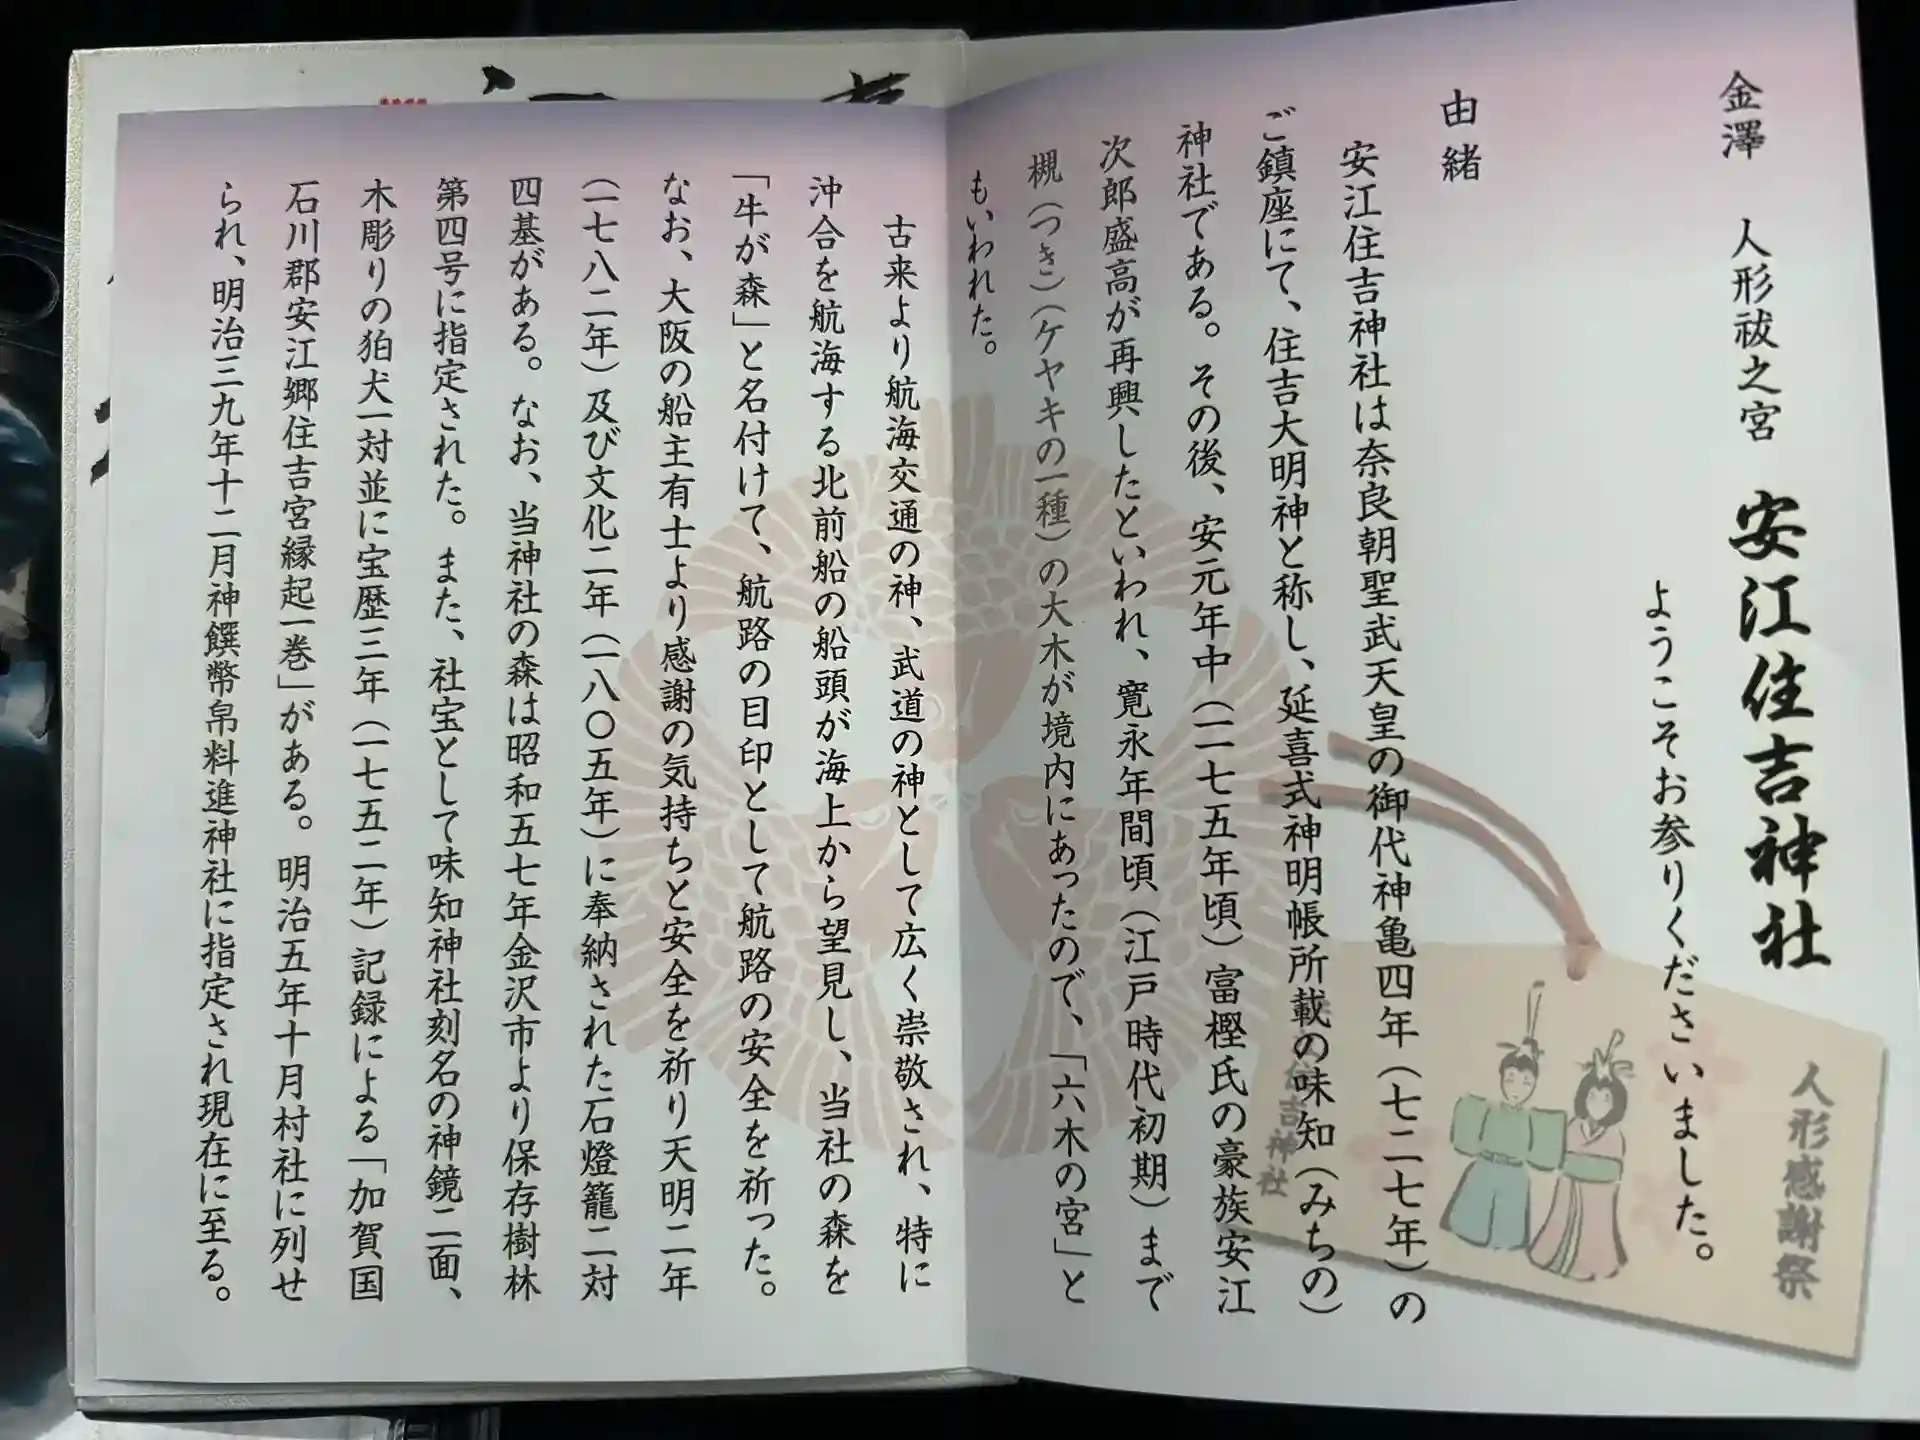 金澤　人形祓之宮　安江住吉神社
ようこそお参りくださいました。
由緒
安江住吉神社は奈良朝聖武天皇の御代神亀四年（七二七年）の
ご鎮座にて、住吉大明神と称し、延喜式神明帳所載の味知（みちの）
神社である。その後、安元年中（一一七五年頃）富樫氏の豪族安江
次郎盛高が再興したといわれ、寛永年間頃（江戸時代初期）まで
槻（つき）（ケヤキの一種）の大木が境内にあったので、「六木の宮」と
もいわれた。
古来より航海交通の神、武道の神として広く崇敬され、特に
沖合を航海する北前船の船頭が海上から望見し、当社の森を
「牛が森」と名付けて、航路の目印として航路の安全を祈った。
なお、大阪の船主有士より感謝の気持ちと安全を祈り天明二年
（一七八二年）及び文化二年（一八〇五年）に奉納された石燈籠二対
四基がある。なお、当神社の森は昭和五七年金沢市より保存樹林
第四号に指定された。また、社宝として味知神社刻名の神鏡二面、
木彫りの狛犬一対並に宝歴三年（一七五二年）記録による「加賀国
石川郡安江郷住吉宮縁起一巻」がある。明治五年十月村社に列せ
られ、明治三九年十二月神饌幣帛料進神社に指定され現在に至る。
人形感謝祭
住吉神社